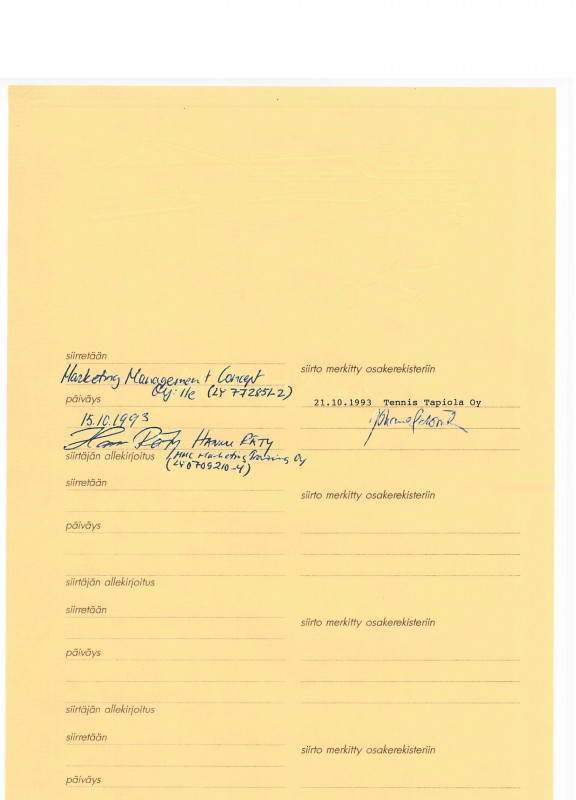 siirretään
Marketing Management Concept
Oy:lle (LY 772851-2)
päiväys
15.10.1993
Hannu Räty HANNU RÄTY
siirtäjän allekirjoitus (MMC Marketing Training Oy
(LY 0709210-4)
siirto merkitty osakerekisteriin
21.10.1993 Tennis Tapiola Oy
siirretään
päiväys
siirtäjän allekirjoitus
siirto merkitty osakerekisteriin
siirretään
päiväys
siirtäjän allekirjoitus
siirto merkitty osakerekisteriin
siirretään
päiväys
siirto merkitty osakerekisteriin